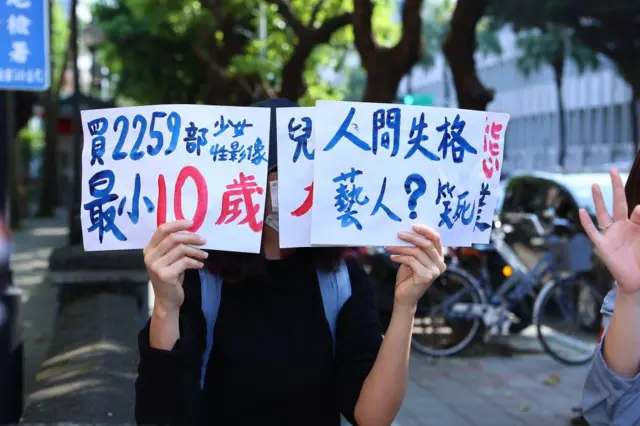 買2259部少女性影像
最小10歲
兒
人間失格
藝人？笑死